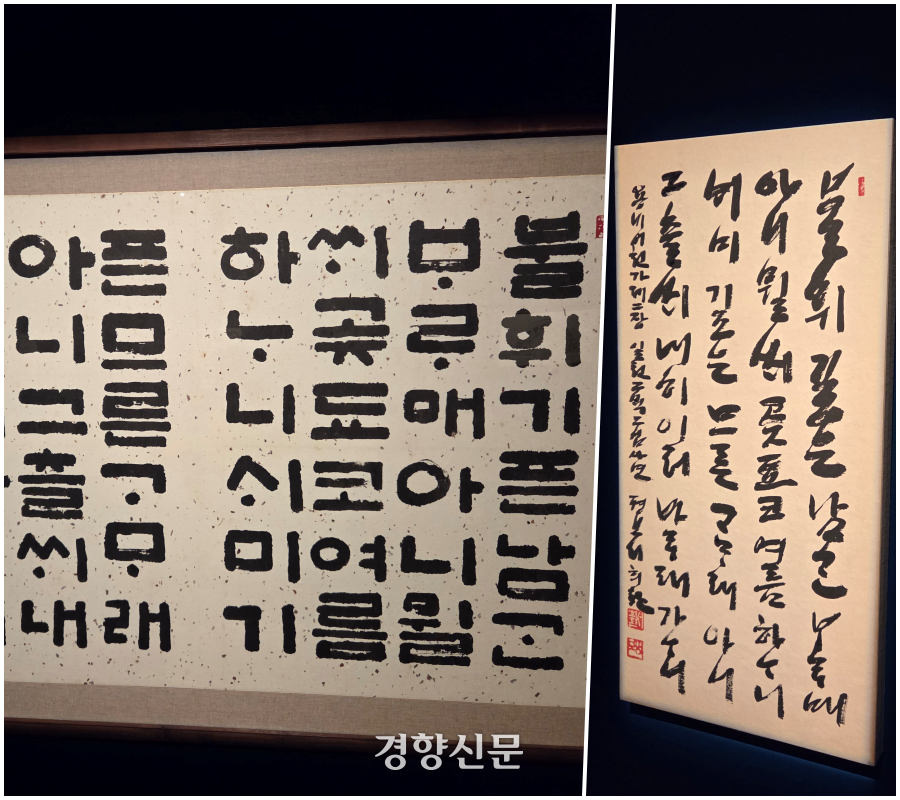 불휘기픈남ᄀᆞᆫ
ᄇᆞᄅᆞ매아니뮐
ᄊᆡ곶됴코여름
하ᄂᆞ니ᄉᆡ미기
픈므른ᄀᆞᄆᆞ래
아니그츨ᄊᆡ내
불휘 깊은 남ᄀᆞᆫ ᄇᆞᄅᆞ매
아니 뮐ᄊᆡ 곶 됴코 여름 하ᄂᆞ니
ᄉᆡ미 기픈 므른 ᄀᆞᄆᆞ래 아니
그츨ᄊᆡ 내히 이러 바ᄅᆞ래 가ᄂᆞ니
용비어천가 제二장 평보 서희환
경향신문